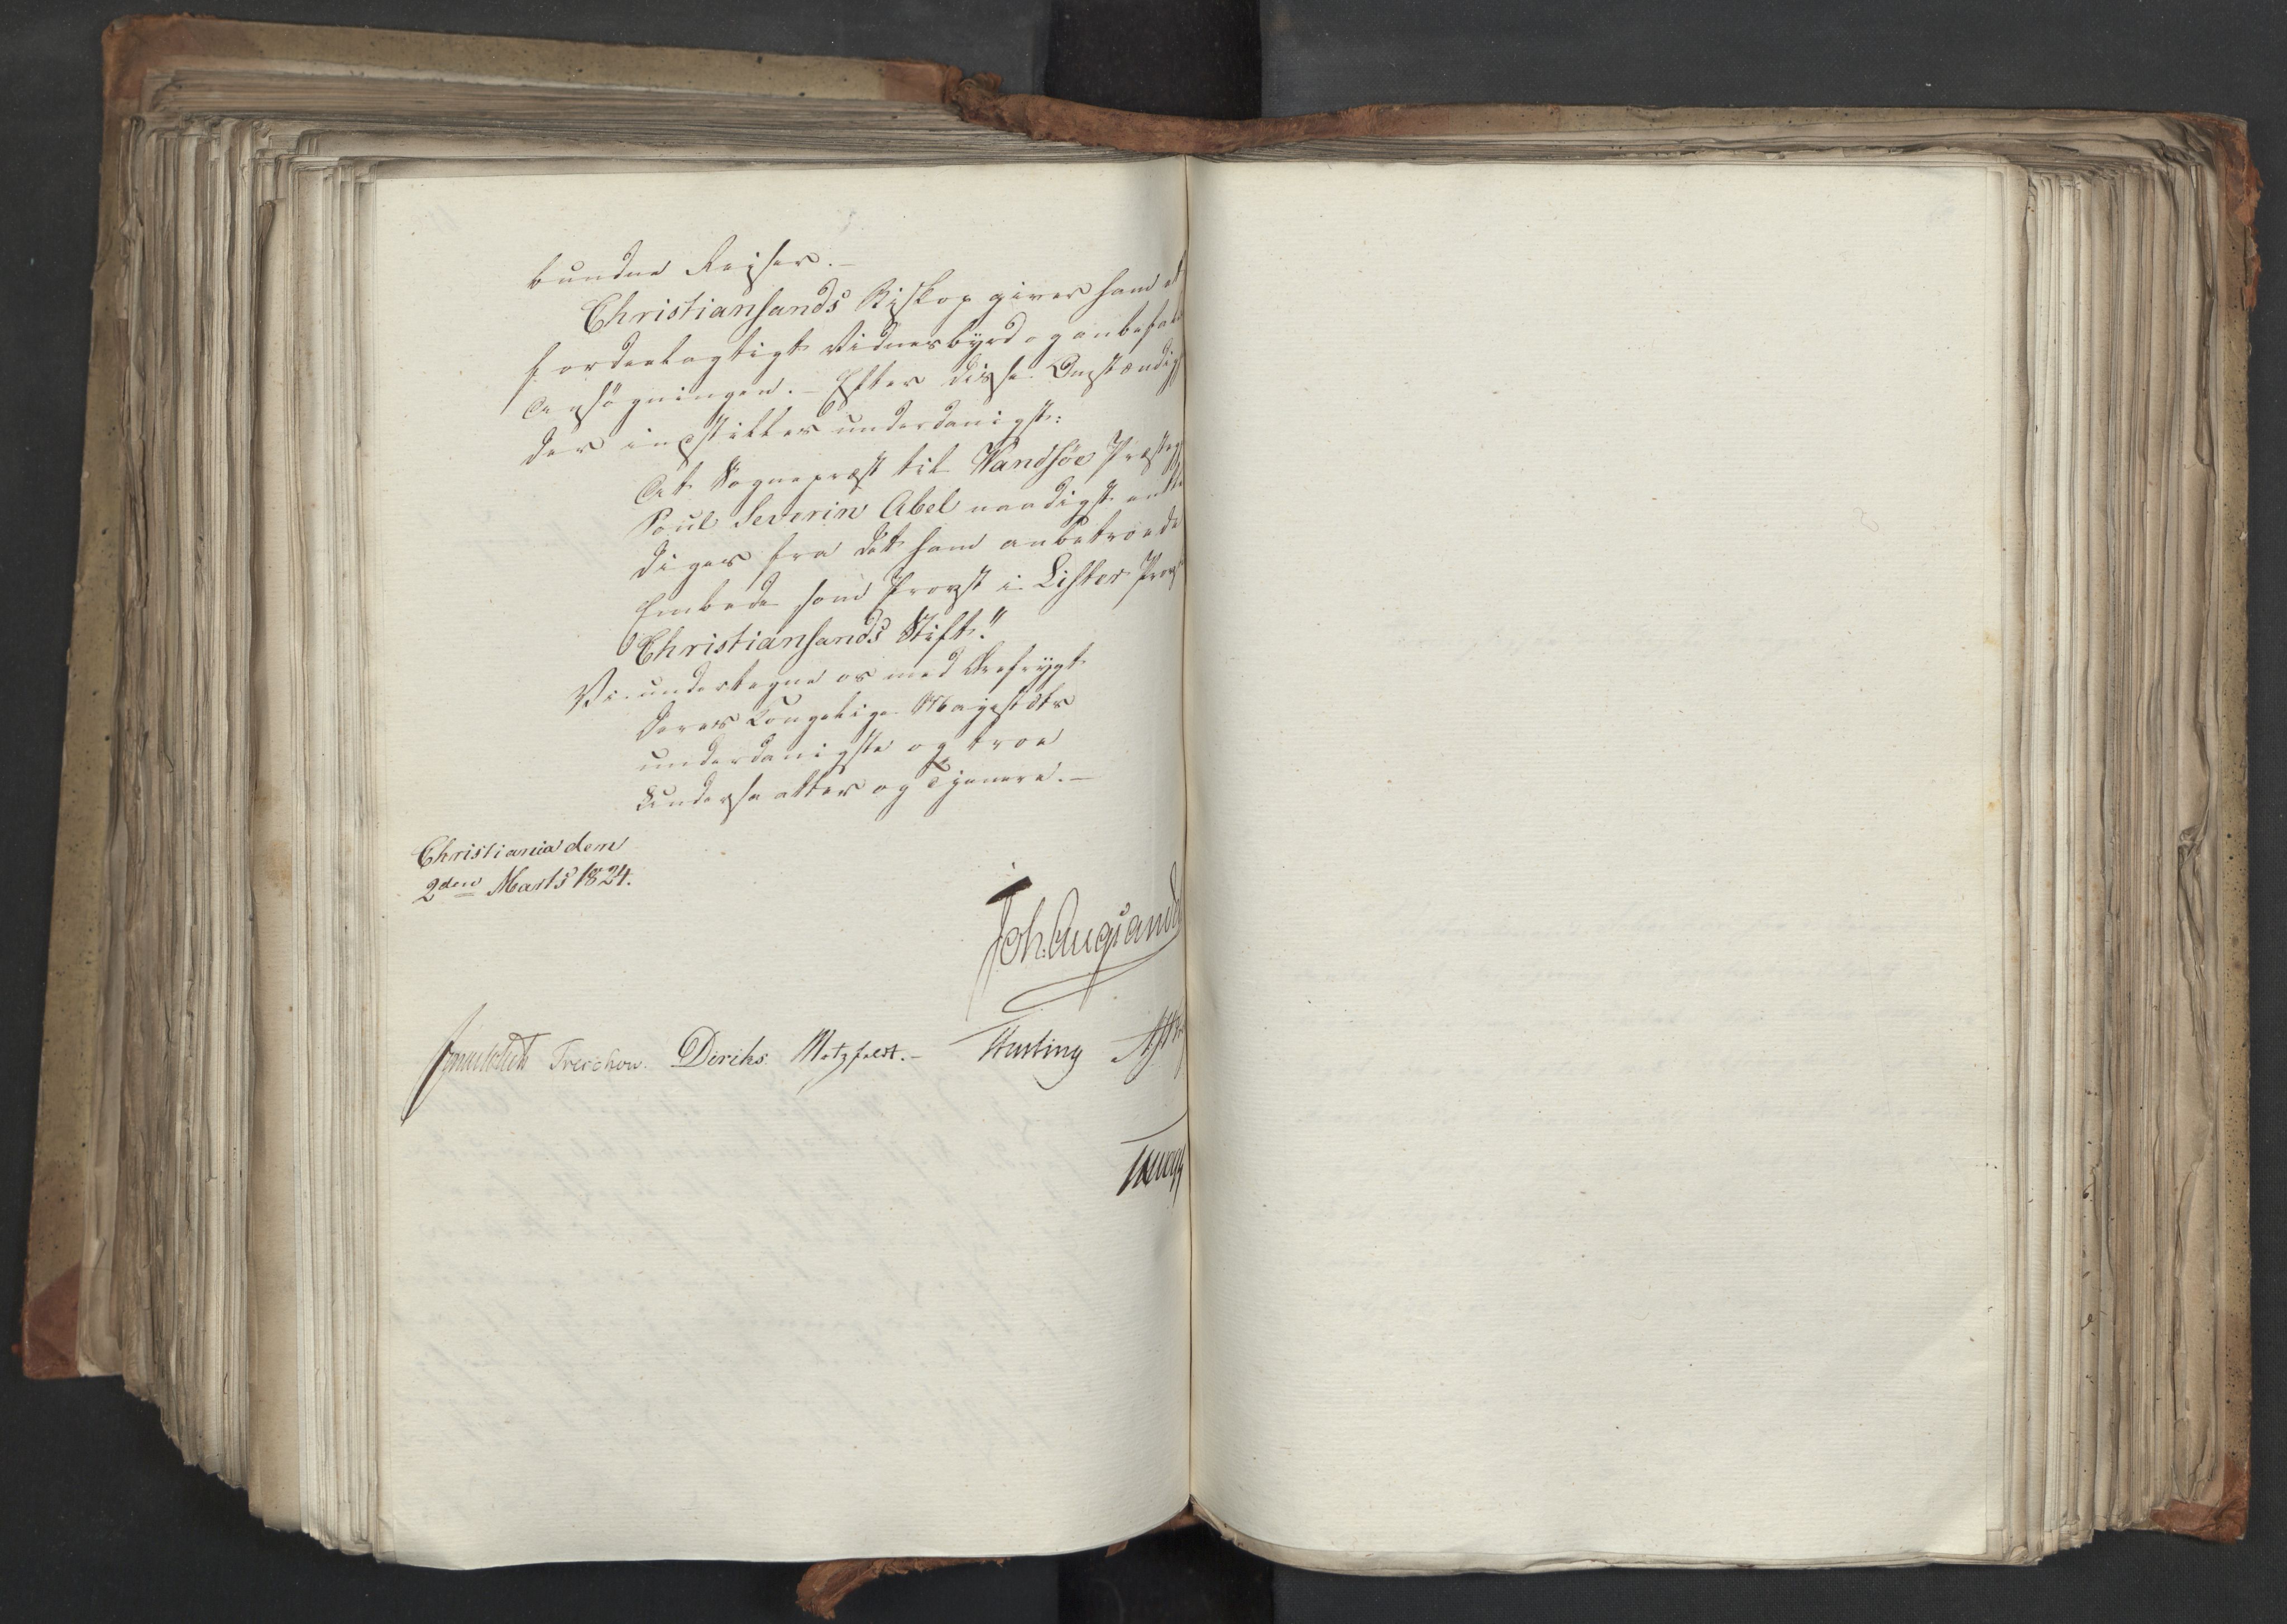 bundne Reiser. —
Christiansands Biskop giver ham et
fordeelagtigt Vidnesbyrd og anbefal
Ansøgningen. — Efter disse Omstændig
der indstilles underdanigst:
At Sognepræst til Vandsøe Præsteg
Poul Severin Abel naadigst entle
diges fra det ham anbetroede
Embede som Provst i Lister Provst
Christiansands Stift."
Vi undertegne os med Ærefrygt
Deres Kongelige Majestæts
underdanigste og troe
Undersaatter og Tjenere. —
Christiania den
2den Marts 1824.
Joh. Aug. Sand
Sommerhielm Treschow. Diriks. Motzfeldt. — Hesting